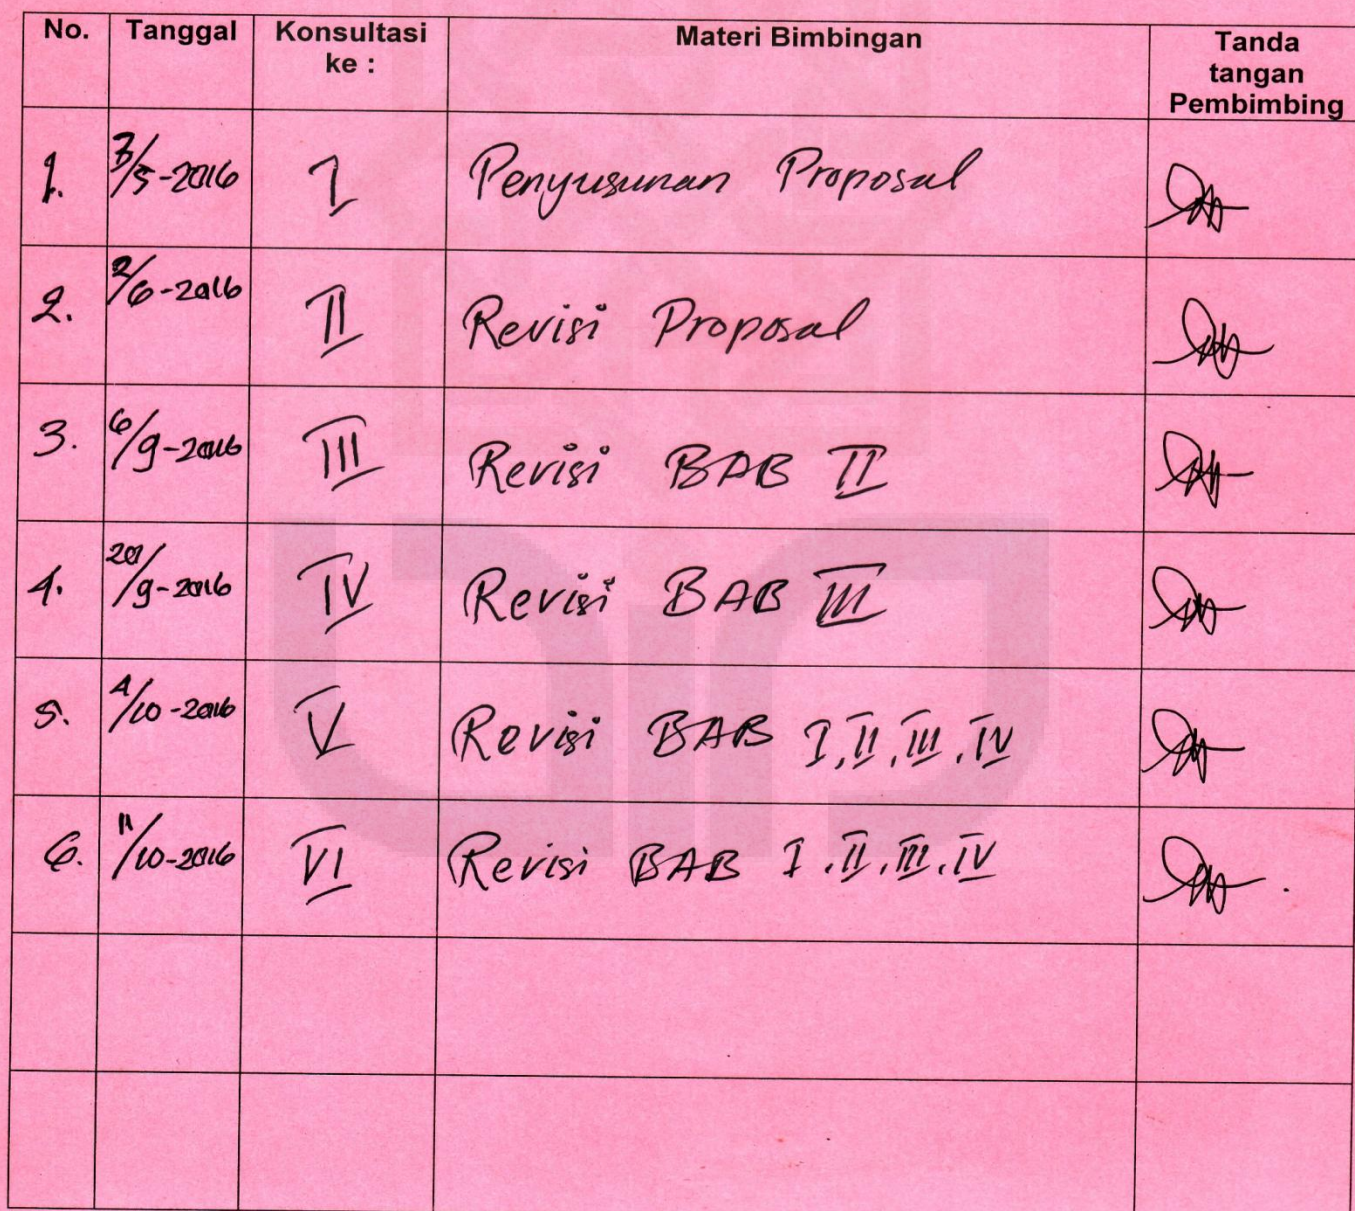 No. Tanggal Konsultasi ke : Materi Bimbingan Tanda tangan Pembimbing
1. 3/5-2016 I Penyusunan Proposal
2. 2/6-2016 II Revisi Proposal
3. 6/9-2016 III Revisi BAB II
4. 20/9-2016 IV Revisi BAB III
5. 4/10-2016 V Revisi BAB I, II, III, IV
6. 11/10-2016 VI Revisi BAB I. II. III. IV